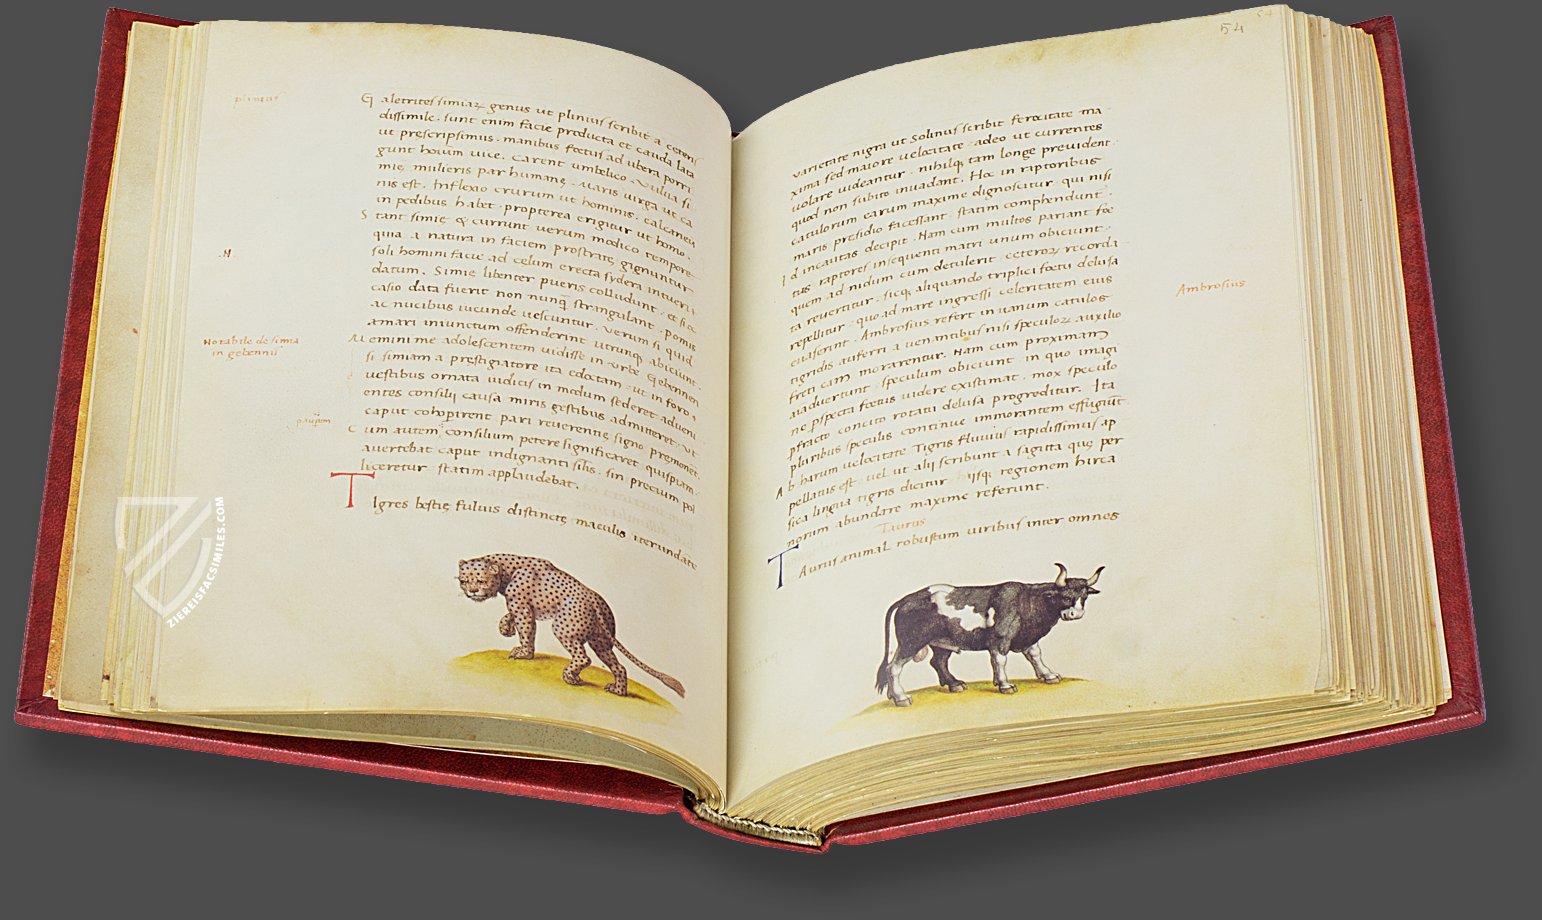 plinius
Galetrices simiarꝝ genus ut plinius scribit a ceteris
dissimile. sunt enim facie producta et cauda lata
ut prescripsimus. manibus fœtus ad ubera porri
gunt hoium vice. Carent umbelico. Vulva si
mię mulieris par humanę. Maris virga ut ca
nis est. Inflexio crurum ut hominis. calcaneū
in pedibus habet. propterea erigitur ut homo.
Stant simię & currunt verum modico tempore
quia a natura in faciem prostratę gignuntur
soli homini facie ad celum erecta sydera intueri
datum. Simię libenter pueris colludunt. et si oc
casio data fuerit non nunq̄ strangulant. Pomis
ac nucibus iucunde vescuntur. verum si quid
amari iniunctum offenderint utrunq; abiciunt.
Memini me adolescentem vidisse in urbe Gebennen
si simiam a prestigiatore ita edoctam. ut in foro
vestibus ornata iudicis in modum sederet adveni
entes consilij causa miris gestibus admitteret. Ut
caput cohoperirent pari reverentię signo premonet
Cum autem consilium petere significaret quispiam.
avertebat caput indignanti silis. sin precium pol
liceretur statim applaudebat.
Tigres bestię fulvis distinctę maculis iterundate
.N.
Notabile de simia
in gebennis
54
varietate nigra ut Solinus scribit ferocitate ma
xima sed maiore velocitate. adeo ut currentes
volare videantur. nihilq; tam longe previdentͬ
quod non subito invadant. Hoc in raptoribus
catulorum earum maxime dignoscitur qui nisi
maris presidio facessant statim comprehendunt
Id incautas decipit. Nam cum multos pariant fœ
tus raptores insequenti matri unum obiciunt.
quem ad nidum cum detulerit ceterorꝝ recorda
ta revertitur. sicq; aliquando triplici fœtu delusa
repellitur. quo ad mare ingressi celeritatem eius
evaserint. Ambrosius refert in vanum catulos
tigridis auferri a venantibus nisi speculorꝝ auxilio
freti eam morarentur. Nam cum proximam
aiadvertunt. speculum obiciunt in quo imagi
ne pspecta fœtus videre existimat. mox speculo
pfracto concito rotatu delusa progreditur. Ita
pluribus speculis continue immorantem effugiūt.
Ab harum velocitate Tigris fluvius rapidissimus ap
pellatus est. vel ut alij scribunt a sagitta quę per
sica lingua tigris dicitur eiusq; regionem hirca
norum abundare maxime referunt.
Taurus
Taurus animal robustum viribus inter omnes
Ambrosius
ZIEREISFACSIMILES.COM